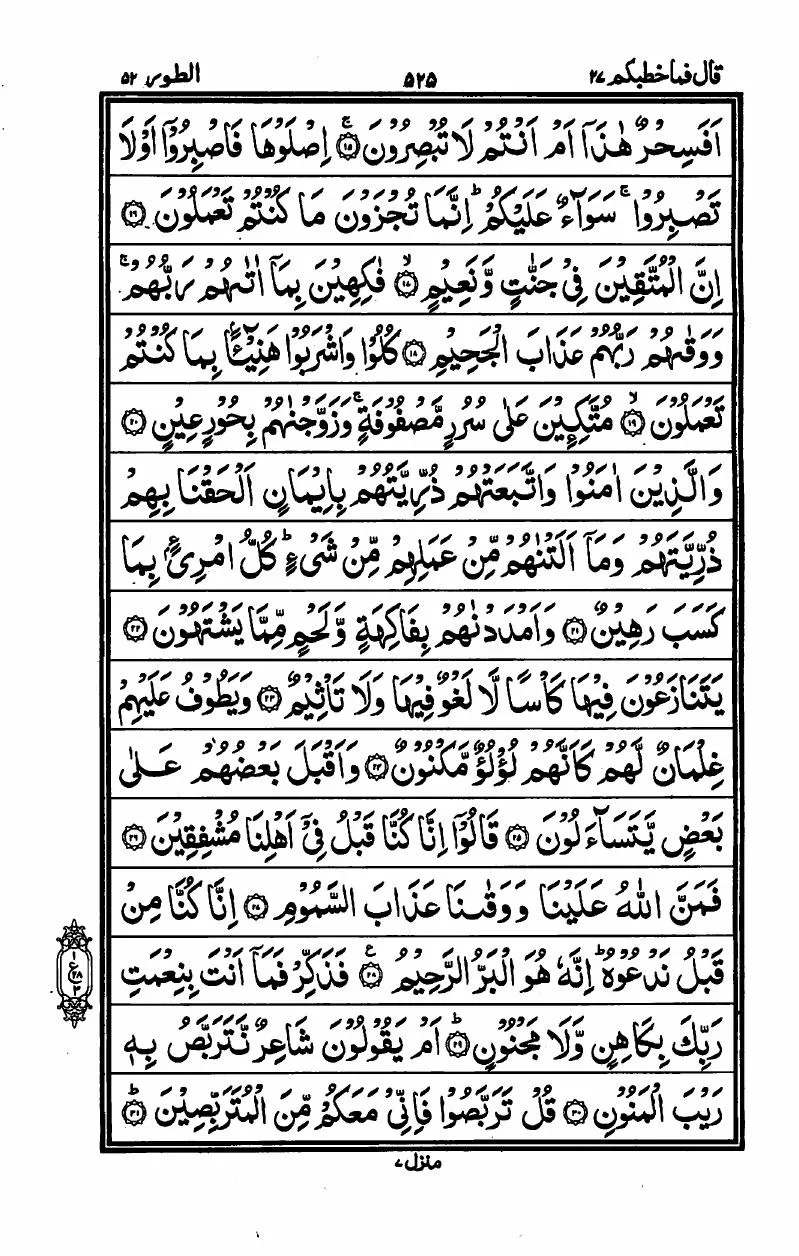 قال فما خطبكم ٢٧ ٥٢٥ الطور ٥٢
اَفَسِحْرٌ هٰذَآ اَمْ اَنْتُمْ لَا تُبْصِرُوْنَ ۚ‏﴿۱۵﴾ اِصْلَوْهَا فَاصْبِرُوْٓا اَوْ لَا
تَصْبِرُوْا ۚ سَوَآءٌ عَلَيْكُمْ ؕ اِنَّمَا تُجْزَوْنَ مَا كُنْتُمْ تَعْمَلُوْنَ ﴿۱۶﴾
اِنَّ الْمُتَّقِيْنَ فِيْ جَنّٰتٍ وَّنَعِيْمٍ ۙ﴿۱۷﴾ فٰكِهِيْنَ بِمَآ اٰتٰىهُمْ رَبُّهُمْ ۚ
وَوَقٰىهُمْ رَبُّهُمْ عَذَابَ الْجَحِيْمِ ﴿۱۸﴾ كُلُوْا وَاشْرَبُوْا هَنِيْٓـًٔا بِمَا كُنْتُمْ
تَعْمَلُوْنَ ۙ﴿۱۹﴾ مُتَّكِـِٕيْنَ عَلٰى سُرُرٍ مَّصْفُوْفَةٍ ۚ وَزَوَّجْنٰهُمْ بِحُوْرٍ عِيْنٍ ﴿۲۰﴾
وَالَّذِيْنَ اٰمَنُوْا وَاتَّبَعَتْهُمْ ذُرِّيَّتُهُمْ بِاِيْمَانٍ اَلْحَقْنَا بِهِمْ
ذُرِّيَّتَهُمْ وَمَآ اَلَتْنٰهُمْ مِّنْ عَمَلِهِمْ مِّنْ شَيْءٍ ؕ كُلُّ امْرِئٍۢ بِمَا
كَسَبَ رَهِيْنٌ ﴿۲۱﴾ وَاَمْدَدْنٰهُمْ بِفَاكِهَةٍ وَّلَحْمٍ مِّمَّا يَشْتَهُوْنَ ﴿۲۲﴾
يَتَنَازَعُوْنَ فِيْهَا كَاْسًا لَّا لَغْوٌ فِيْهَا وَلَا تَاْثِيْمٌ ﴿۲۳﴾ وَيَطُوْفُ عَلَيْهِمْ
غِلْمَانٌ لَّهُمْ كَاَنَّهُمْ لُؤْلُؤٌ مَّكْنُوْنٌ ﴿۲۴﴾ وَاَقْبَلَ بَعْضُهُمْ عَلٰى
بَعْضٍ يَّتَسَآءَلُوْنَ ﴿۲۵﴾ قَالُوْٓا اِنَّا كُنَّا قَبْلُ فِيْٓ اَهْلِنَا مُشْفِقِيْنَ ﴿۲۶﴾
فَمَنَّ اللّٰهُ عَلَيْنَا وَوَقٰىنَا عَذَابَ السَّمُوْمِ ﴿۲۷﴾ اِنَّا كُنَّا مِنْ
قَبْلُ نَدْعُوْهُ ؕ اِنَّهٗ هُوَ الْبَرُّ الرَّحِيْمُ ﴿۲۸﴾ ع فَذَكِّرْ فَمَآ اَنْتَ بِنِعْمَتِ
رَبِّكَ بِكَاهِنٍ وَّلَا مَجْنُوْنٍ ؕ﴿۲۹﴾ اَمْ يَقُوْلُوْنَ شَاعِرٌ نَّتَرَبَّصُ بِهٖ
رَيْبَ الْمَنُوْنِ ﴿۳۰﴾ قُلْ تَرَبَّصُوْا فَاِنِّيْ مَعَكُمْ مِّنَ الْمُتَرَبِّصِيْنَ ؕ﴿۳۱﴾
١
ع ٢٨
٣
منزل ٧